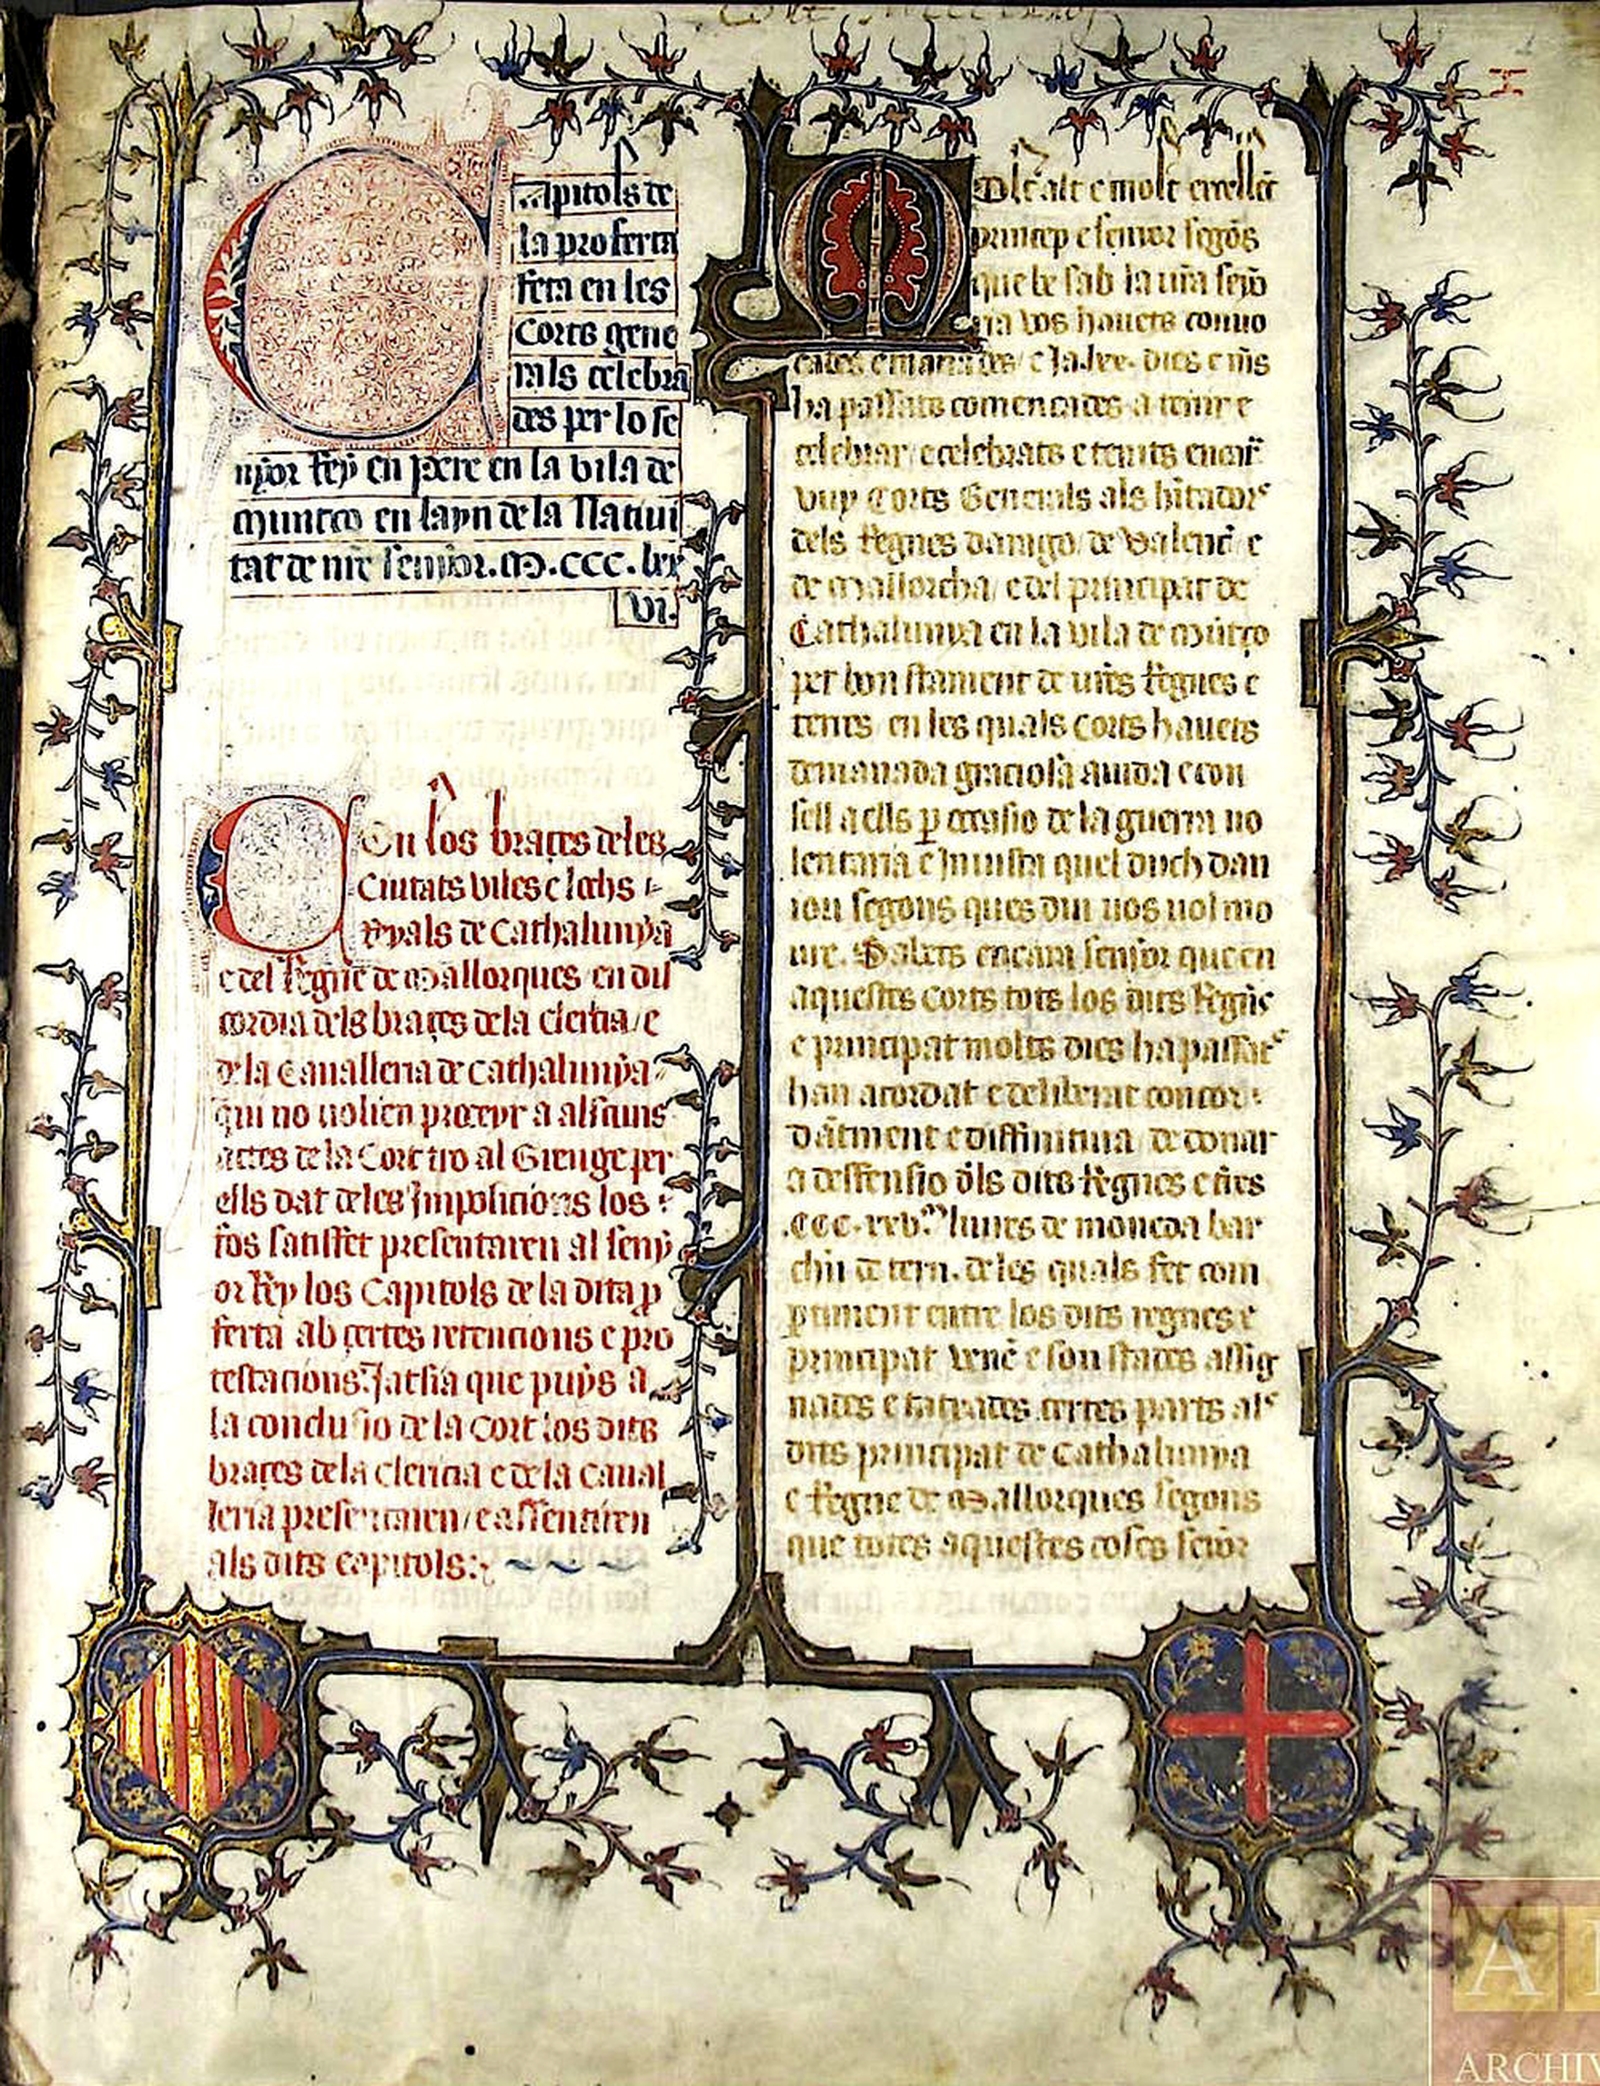 Capitols de
la proferta
feta en les
Corts gene
rals celebra
des per lo se
nyor Rey en Pere en la vila de
Muntco en layn de la Natiui
tat de nře senyor. M. CCC. lxx
VI.
On los braços de les
Ciutats viles e lochs
Reyals de Cathalunya
e del Regne de Mallorques en dis
cordia dels braços de la clericia / e
de la Caualleria de Cathalunya
qui no volien proceyr a alscuns
actes de la Cort tro al Greuge per
ells dat de les Imposicions los
fos satisfet presentaren al seny
or Rey los Capitols de la dita p
ferta ab certes retencions e pro
testacions. Jatsia que puys a
la conclusio de la Cort los dits
braços de la clericia e de la Caual
leria presentaren / e assentiren
als dits capitols:
Molt alt e molt excellēt
princep e senyor segōs
que be sab la vřa senyo
ria vos hauets conuo
cades e manades / e Ja. lxx. dies e mēs
ha passats comencades a tenir e
celebrar / e celebrats e tenits encař
vuy Corts Generals als hītadors
dels Regnes darago / de Valenč e
de Mallorcha / e del principat de
Cathalunya en la vila de Mūtço
per bon stament de vřes Regnes e
terres / en les quals Corts hauets
demanada graciosa aiuda e con
sell a ells p occasio de la guerra uo
lentaria e Iniusta quel duch dan
iou segons ques diu vos vol mo
ure. Salets encara senyor que en
aquestes Corts tots los dits Regňs
e principat molts dies ha passats
han acordat e deliberat concor
dāment e diffinitiua de donar
a deffensio dls dits Regnes e ťres
.CCC. xxv.ᵐ liures de moneda bar
chīn de tern. de les quals fet com
ptiment entre los dits regnes e
principat venč e son stades assig
nades e tatxades certes parts als
dits principat de Cathalunya
e Regne de Mallorques segons
que totes aquestes coses senior
A
ARCHIV